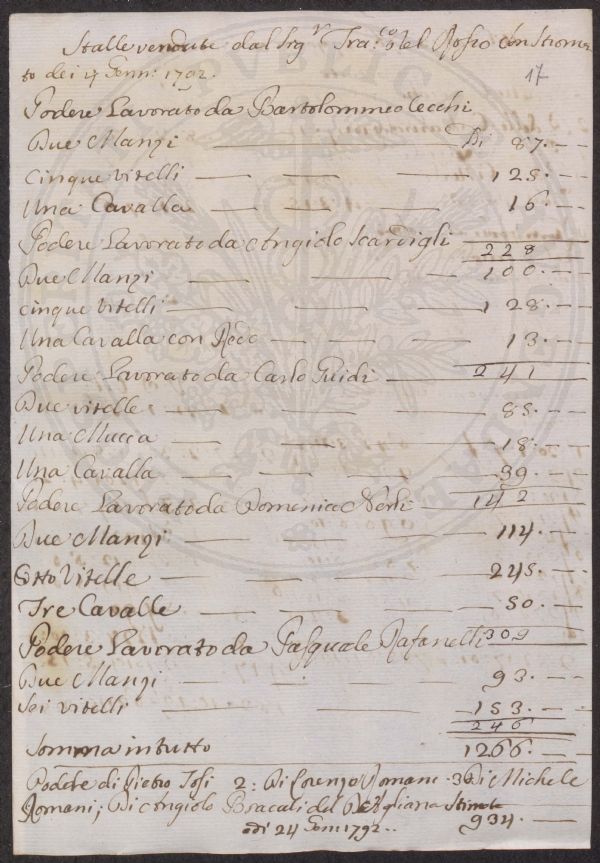 Stalle vendute dal Sig.r Fra.co del Rosso con Stromen
to dei 17 Genn: 1792.
17
Podere Lavorato da Bartolommeo Cecchi
Due Manzi — Di 87. — —
Cinque vitelli — — — 125. — —
Una Cavalla — — — 16. — —
Podere Lavorato da Angiolo Scarcigli — 228
Due Manzi — — — 100. — —
Cinque vitelli — — — 128. — —
Una Cavalla con Redo — — 13. — —
Podere Lavorato da Carlo Guidi — 241
Due vitelle — — — 85. — —
Una Mucca — — — 18. — —
Una Cavalla — — — 39. — —
Podere Lavorato da Domenico Nerli — 142
Due Manzi — — — 114. — —
Otto Vitelle — — — 245. — —
Tre Cavalle — — — 50. — —
Podere Lavorato da Pasquale Rafanelli 309
Due Manzi — — — 93. — —
Sei vitelli — — — 153. — —
246
Somma in tutto 1266. — —
Podere di Pietro Tosi 2: Di Lorenzo Romani. 3 Di Michele
Romani; Di Angiolo Bracali del
adi 24 Gen 1792.. 934. — —